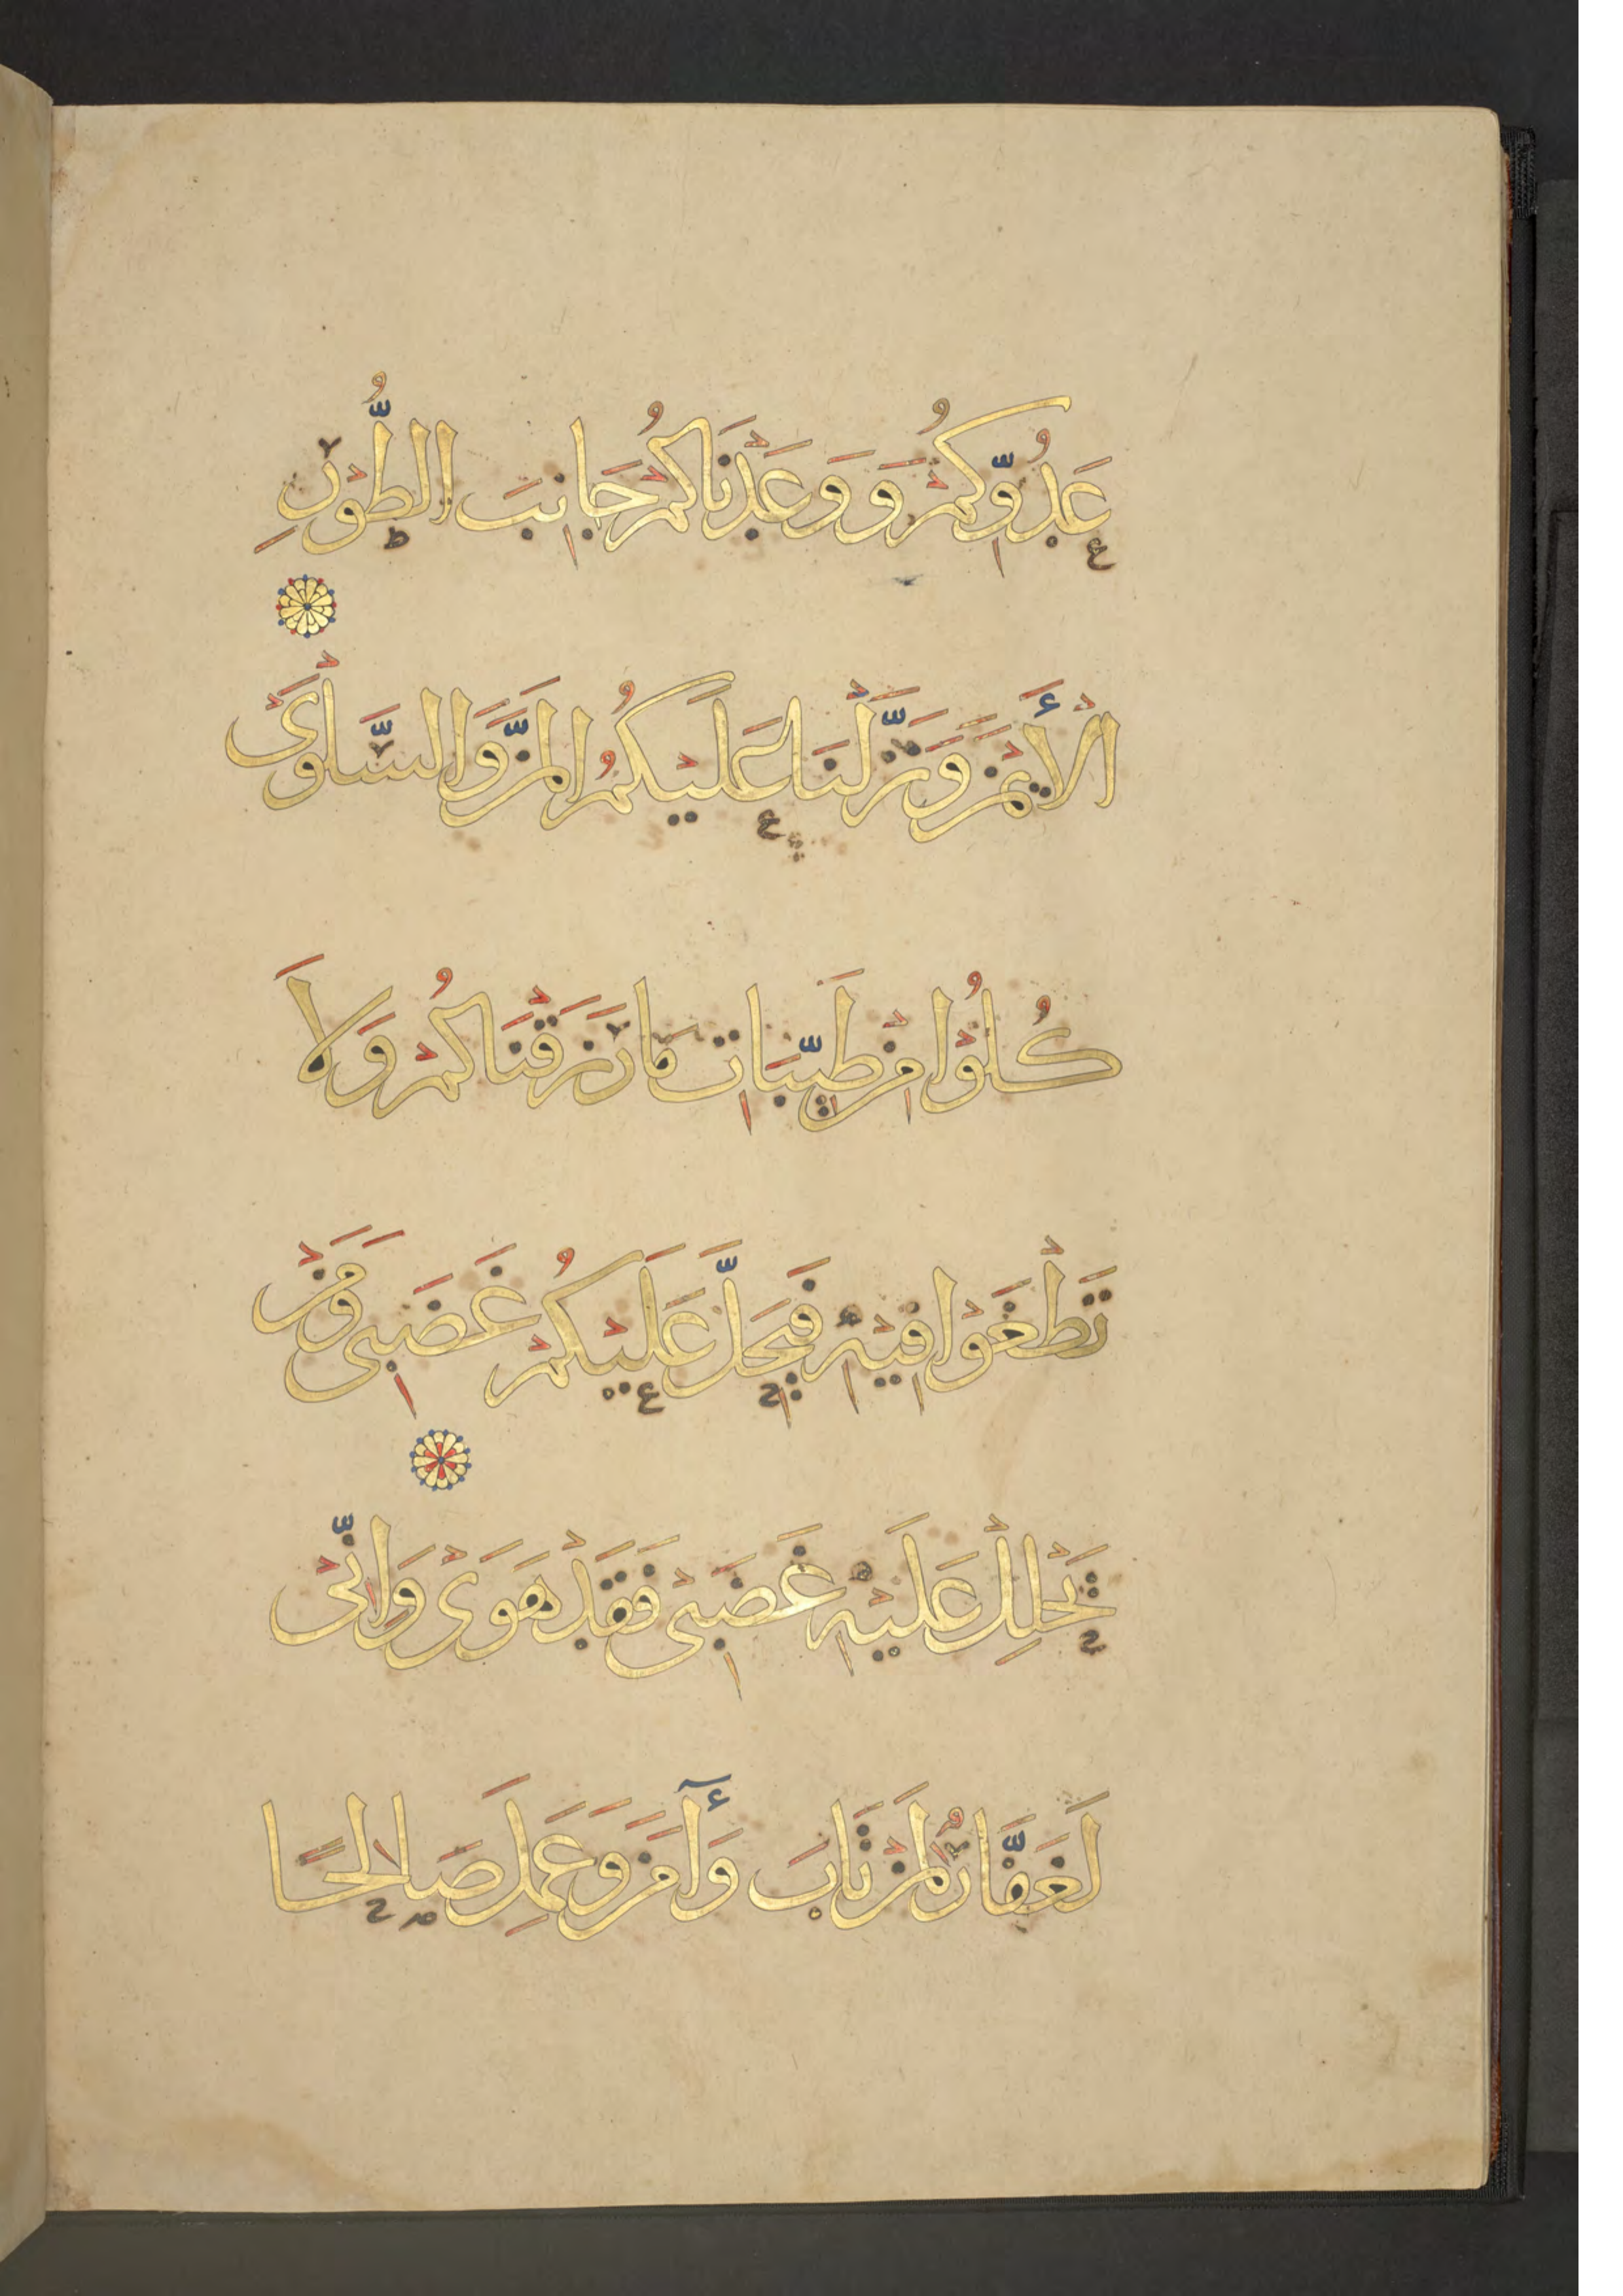 عَدُوِّكُمْ وَوَعَدْنَاكُمْ جَانِبَ الطُّوْرِ
الْأَيْمَنَ وَنَزَّلْنَا عَلَيْكُمُ الْمَنَّ وَالسَّلْوَىْ
كُلُوْا مِنْ طَيِّبَاتِ مَا رَزَقْنَاكُمْ وَلَا
تَطْغَوْا فِيْهِ فَيَحِلَّ عَلَيْكُمْ غَضَبِى وَمَنْ
يَحْلِلْ عَلَيْهِ غَضَبِىْ فَقَدْ هَوَىْ وَاِنِّىْ
لَغَفَّارٌ لِمَنْ تَابَ وَأٓمَنَ وَعَمِلَ صَالِحًا